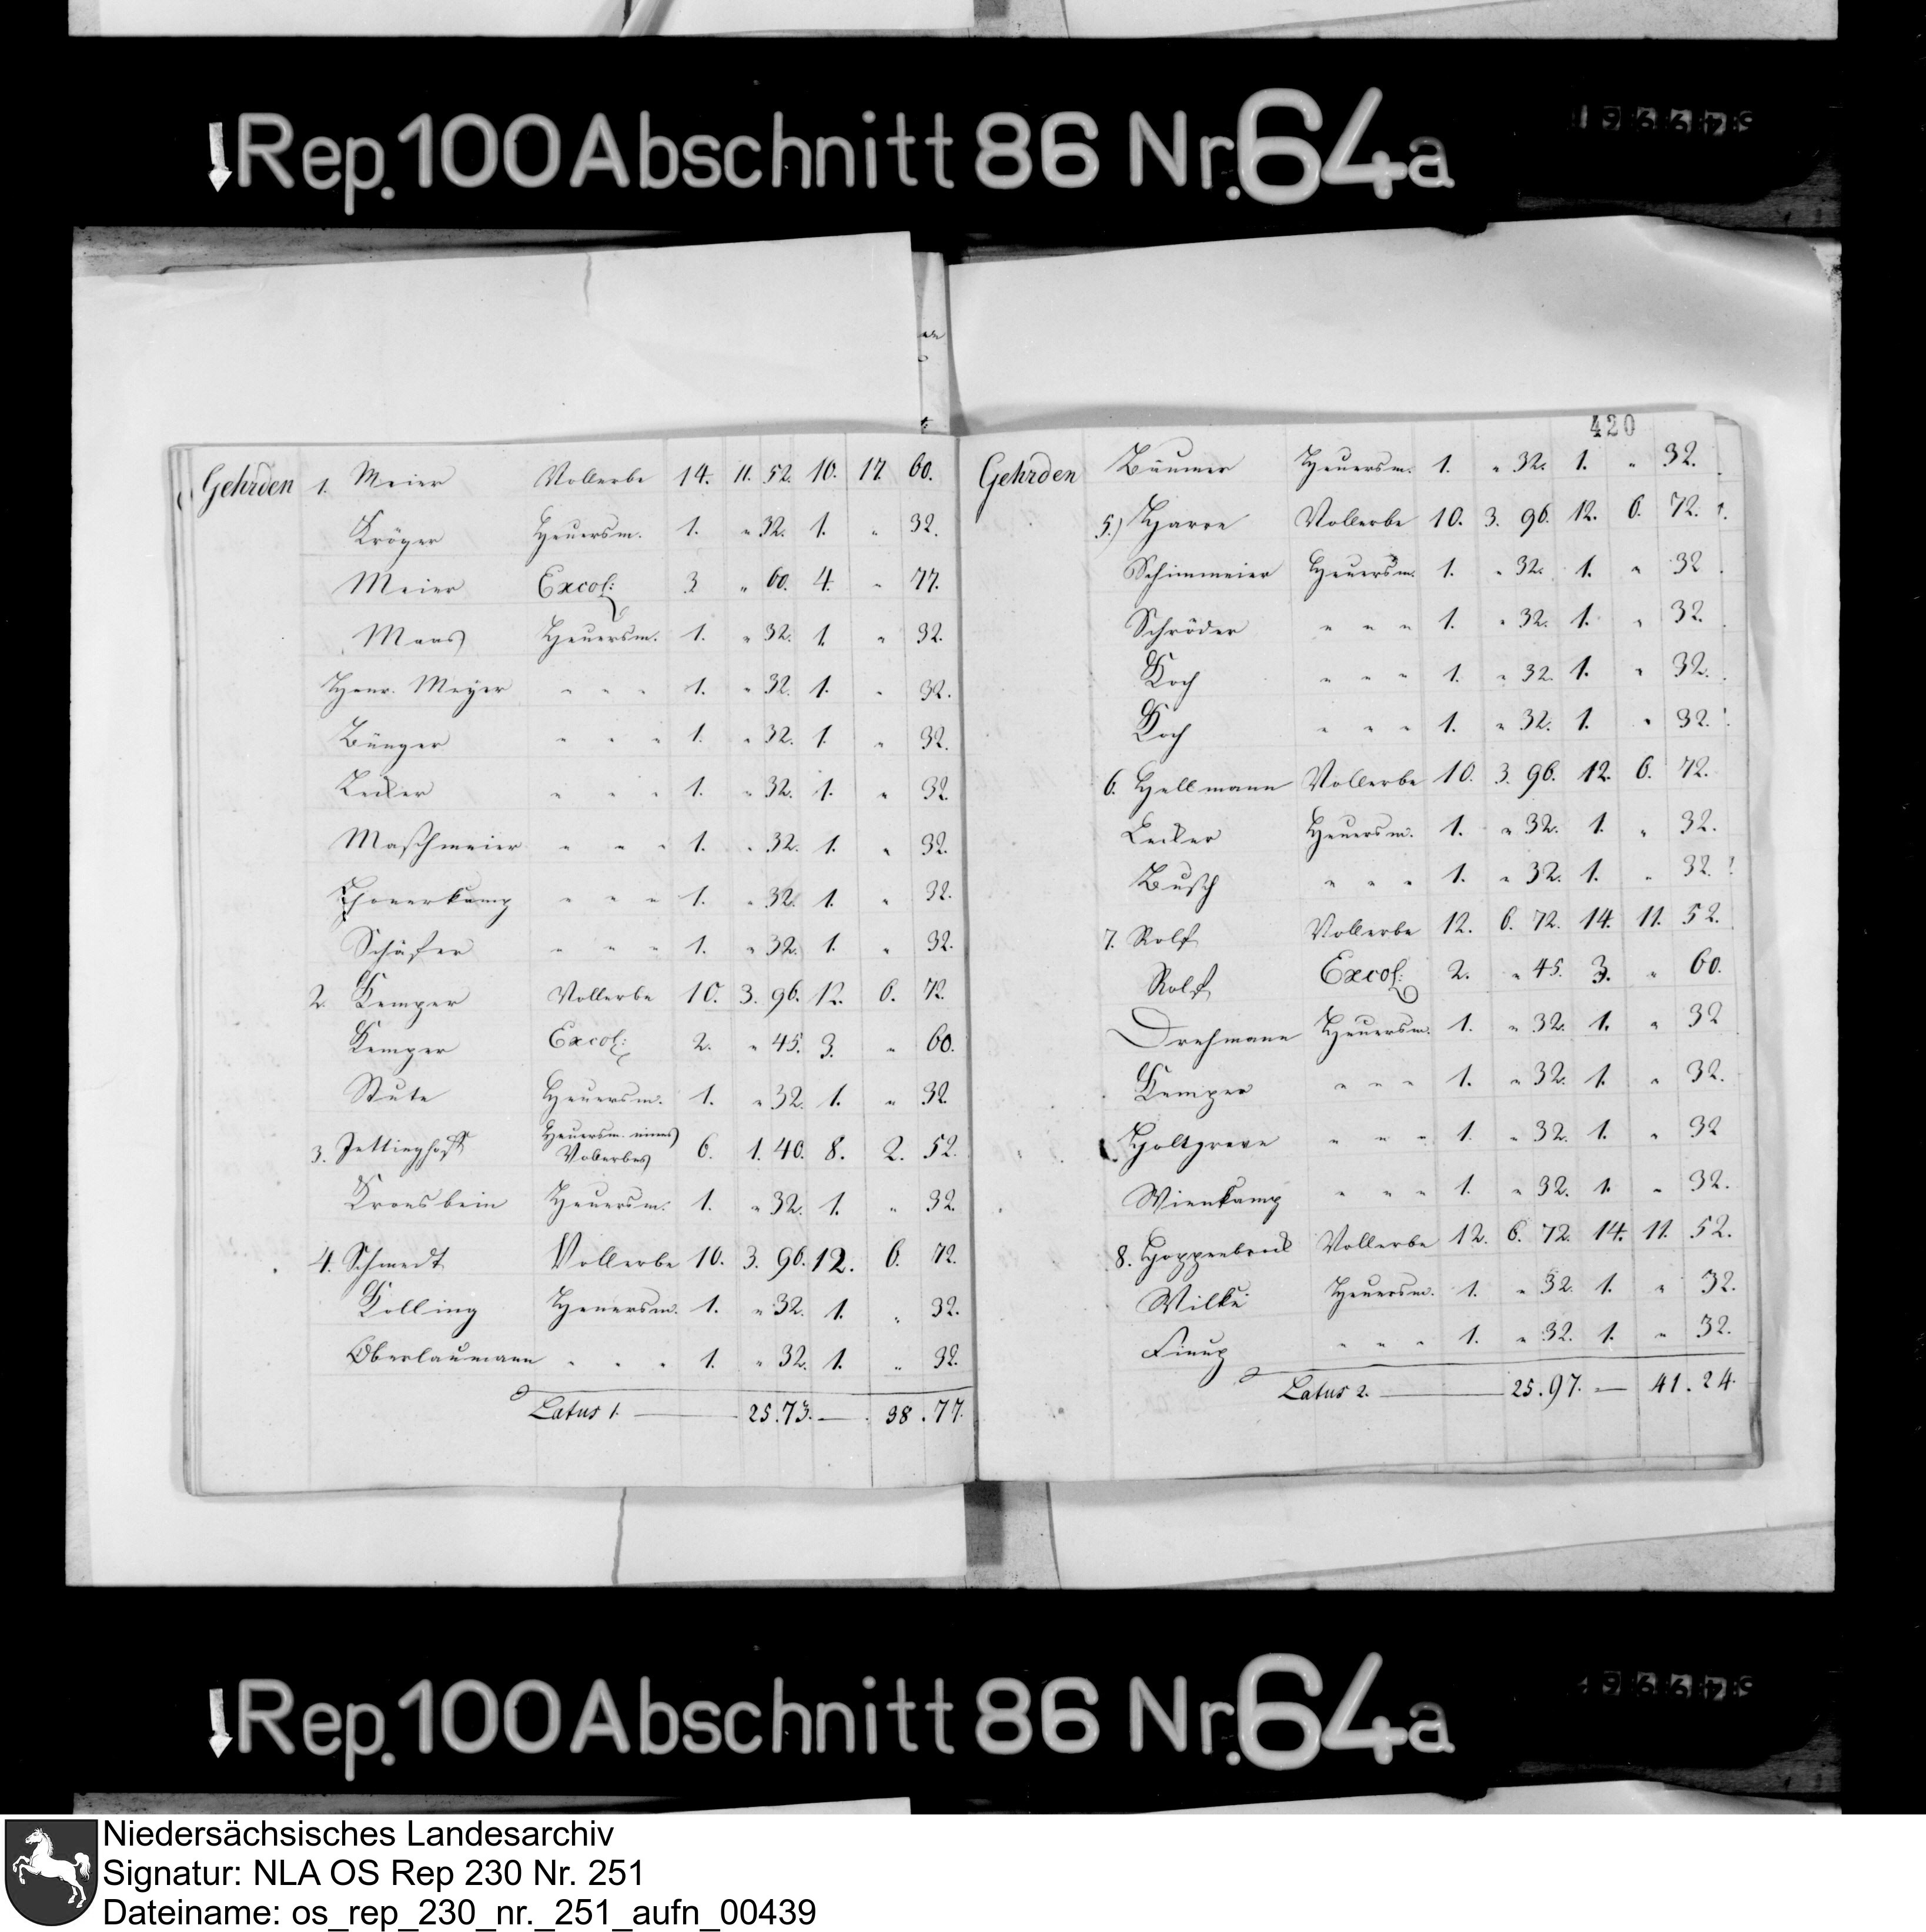 Rep. 100 Abschnitt 86 Nr. 64a
420
Gehrden 1. Meier Vollerbe 14. 11. 52. 10. 17. 60.
Kröger Heuersm. 1. " 32. 1. " 32.
Meier Excol: 3 " 60. 4. " 77.
Maas Heuersm. 1. " 32. 1. " 32.
Henr. Meyer " " " 1. " 32. 1. " 32.
Bünger " " " 1. " 32. 1. " 32.
Lecker " " " 1. " 32. 1. " 32.
Maßhmeier " " " 1. " 32. 1. " 32.
" " " 1. " 32. 1. " 32.
Schäfer " " " 1. " 32. 1. " 32.
2. Kemper Vollerbe 10. 3. 96. 12. 6. 72.
Kemper Excol: 2. " 45. 3. " 60.
Stute Heuersm. 1. " 32. 1. " 32.
3. Jettinghoff Heuersm. eines Vollerbes 6. 1. 40. 8. 2. 52.
Kronsbein Heuersm. 1. " 32. 1. " 32.
4. Schmedt Vollerbe 10. 3. 96. 12. 6. 72.
Kolling Heuersm. 1. " 32. 1. " 32.
Oberlaumann " " " 1. " 32. 1. " 32.
Latus 1. — 25. 73. — 38. 77.
Gehrden Bäumer Heuersm. 1. " 32. 1. " 32.
5.) Harre Vollerbe 10. 3. 96. 12. 6. 72.
Schimmeier Heuersm. 1. " 32. 1. " 32
Schröder " " " 1. " 32. 1. " 32.
Koch " " " 1. " 32. 1. " 32.
Koch " " " 1. " 32. 1. " 32.
6. Hellmann Vollerbe 10. 3. 96. 12. 6. 72.
Lecker Heuersm. 1. " 32. 1. " 32.
Bußh " " " 1. " 32. 1. " 32.
7. Rolf Vollerbe 12. 6. 72. 14. 11. 52.
Rolf Excol: 2. " 45. 3. " 60.
Drehmann Heuersm. 1. " 32. 1. " 32
Kemper " " " 1. " 32. 1. " 32.
Holtgreve " " " 1. " 32. 1. " 32
Wienkamp " " " 1. " 32. 1. " 32.
8. Hoppenbrock Vollerbe 12. 6. 72. 14. 11. 52.
Wilke Heuersm. 1. " 32. 1. " 32.
Finup " " " 1. " 32. 1. " 32.
Latus 2. — 25. 97. — 41. 24.
Rep. 100 Abschnitt 86 Nr. 64a
Niedersächsisches Landesarchiv
Signatur: NLA OS Rep 230 Nr. 251
Dateiname: os_rep_230_nr._251_aufn_00439